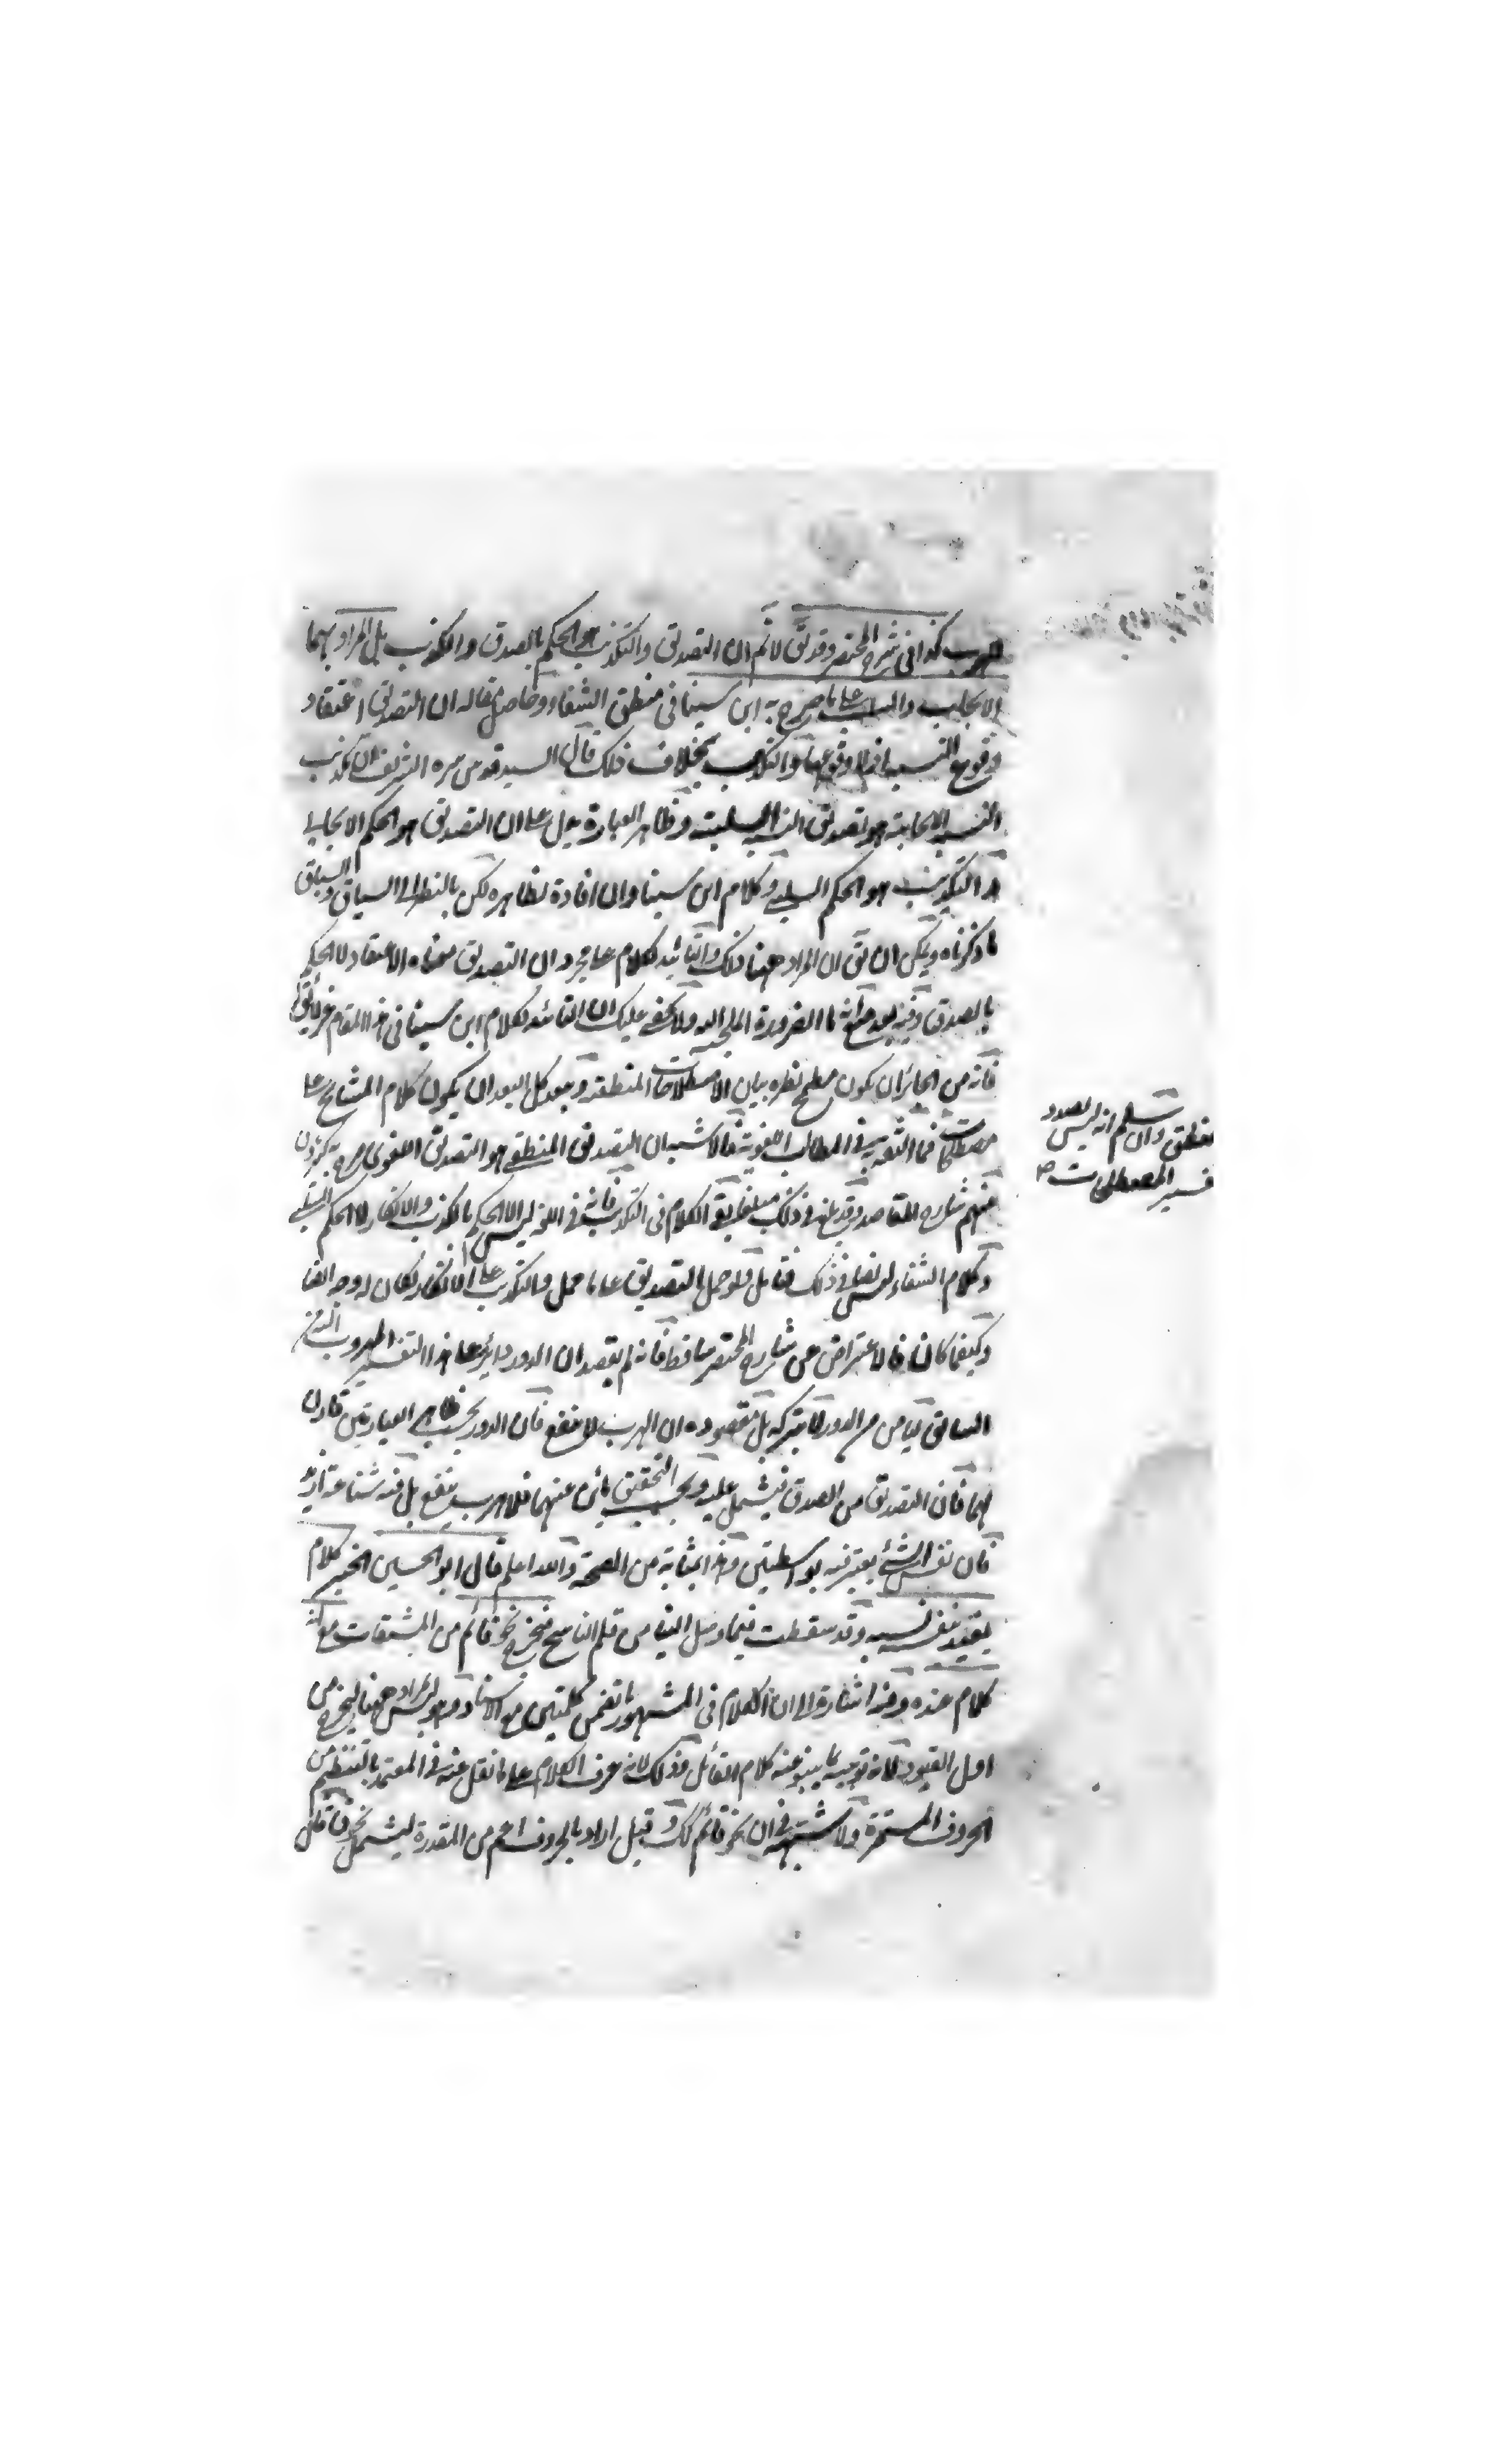 الهرب كذا في شرح المختصر وقد يق لا ثم ان التصديق والتكذيب هو الحكم بالصدق والكذب بل المراد بهما
الايجاب والسلب على ما صرح به ابن سينا في منطق الشفاء وحاصل مقاله ان التصديق اعتقاد
وقوع النسبة او لا وقوعها والتكذيب بخلاف ذلك قال السيد قدس سره الشريف ان تكذيب
النسبة الايجابية هو تصديق النسبة السلبية وظاهر العبارة يدل على ان التصديق هو الحكم الايجابي
والتكذيب هو الحكم السلبي وكلام ابن سينا وان افاده بظاهره لكن بالنظر الى السياق والسباق
ما ذكرناه ويمكن ان يق ان المراد ههنا ذلك والتائيد لكلام على مجرد ان التصديق معناه الاعتقاد لا الحكم
بالصدق وفيه بعد مع انه ما الضرورة الملجئة اليه ولا يخفى عليك ان التائيد لكلام ابن سينا في هذا المقام غير لائق
فانه من الجائز ان يكون مطمح نظره بيان الاصطلاحات المنطقية وبعد كل البعد ان يكون كلام المشايخ على
مصطلحاتهم في المطالب اللغوية فالاشبه ان التصديق المنطقي هو التصديق اللغوي صرح به كثيرون
منهم شارح المقاصد وقد بلغ في ذلك مبلغا بقي الكلام في التكذيب فانه في اللغة ليس الا الحكم بالكذب والانكار لا الحكم السلبي
وكلام الشفاء ليس نصا في ذلك فتامل ولو حمل التصديق على ما حمل والتكذيب على الانكار لكان له وجه الفا
وكيفما كان فالاعتراض عن شارح المختصر ساقط فانه لم يقصد ان الدور دائر على هذا التفسير المهروب اليه
السابق ليس من الدور لا يتركه بل مقصوده ان الهرب لا ينفع فان الدور بحسب ظاهر العبارتين قارن
لهما فان التصديق من الصدق فيشمل عليه وبحسب التحقيق بائن عنهما فلا هرب ينفع بل فيه شناعة ازيد
فان نفس الشيء يعتبر فيه بواسطتين وهذا بمثابة من الصحة والله اعلم قال ابو الحسين الخبر كلام
يفيد بنفسه نسبة وقد سقطت فيما وصل الينا من قلم الناسخ فيخرج نحو قائم من المشتقات مع انه
كلام عنده وهذا اشارة الى ان الكلام في المشهور ما تضمن كلمتين مع الاسناد وهو ليس المراد ههنا ليخرج من
اول القيود لانه توجيه بما ينبو عنه كلام القائل وذلك لانه عرف الكلام على ما نقل عنه في المعتمد بالمنتظم من
الحروف المتميزة ولا شبهة في ان نحو قائم كك وقيل اراد بالحروف اعم من المقدرة ليشمل نحو ق فان
تسليم انه ليس بصدد
منطق وان
تفسير المصطلحات